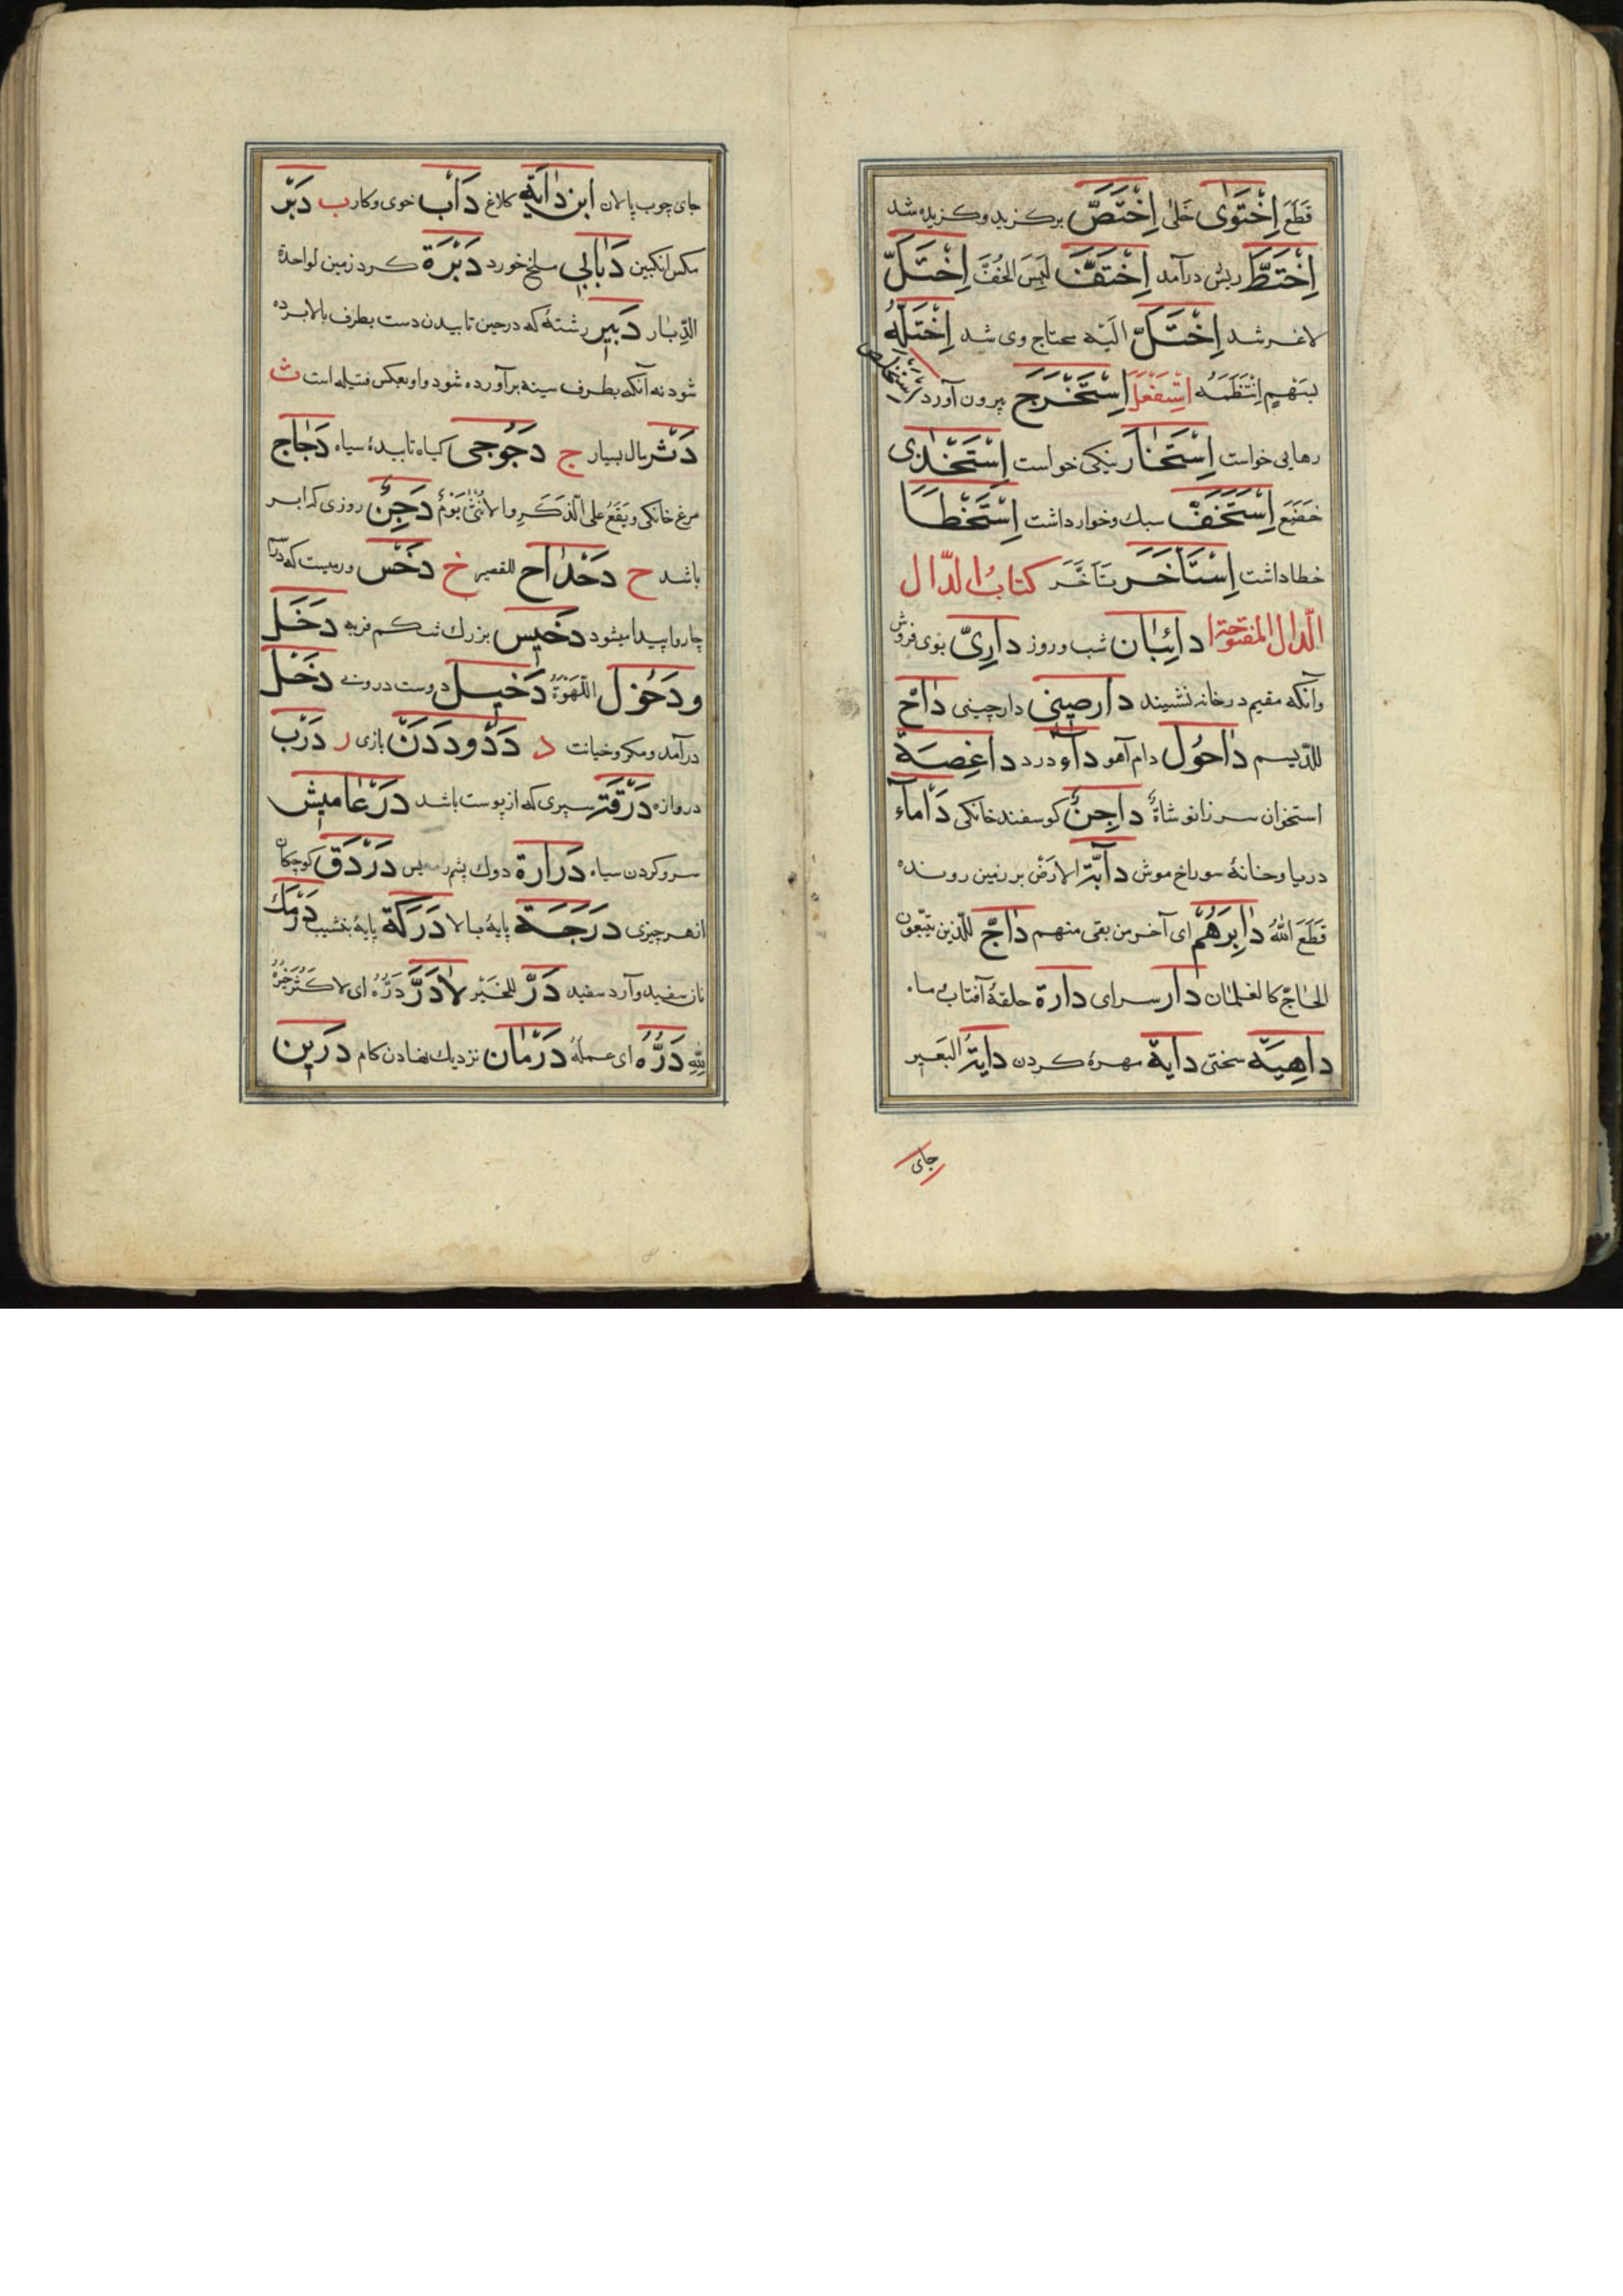 قَطَعَ اِخْتَوٰى خَلٰى اِخْتَصَّ برگزید و گزیده شد
اِخْتَطَّ ریش درآمد اِخْتَفَّ لَبِسَ الخُفَّ اِخْتَلَّ
لاغر شد اِخْتَلَّ اِلَیْه محتاج وی شد اِخْتَلَّهُ
بسَهْمٍ اِنْتَظَمَهُ اِسْتَفْعَلَ اِسْتَخْرَجَ بیرون آورد اِسْتَخْلَصَ
رهایی خواست اِسْتَخَارَ نیکی خواست اِسْتَخْذٰی
خَضَعَ اِسْتَخَفَّ سبك و خوار داشت اِسْتَخْطَأَ
خطا داشت اِسْتَأْخَرَ تَأَخَّرَ کتابُ الدّال
الدّال المفتوحة دائِبَان شب و روز دارِیّ بوی فروش
وآنکه مقیم در خانه نشیند دارصِینی دارچینی داحّ
داحُول دام آهو دآء درد داغِصَة
استخوان سر زانو شاةٌ داجِنٌ گوسفند خانگی دَأْمَاء
دریا و خانۀ سوراخ موش دآبّة الارْض بر زمین رونده
قَطَعَ اللهُ دابِرَهُمْ ای آخر من بقی منهم داجّ للّذین یتّبعون
الحاجّ کالغلمان دار سرای دارة حلقۀ آفتاب و ماه
داهِیَة سختی دایة مهرۀ کردن دایةُ البَعیر
جای
جای چوب پالان ابن دَاْیَة کلاغ دَأْب خوی و کار ب دَبْر
مکس انکبین دَبٰابی ملخ خورد دَبْرَة کرد زمین لواحدة
الدِّبار دَبِیر رشتۀ که در حین تابیدن دست بطرف بالا برده
شود نه آنکه بطرف سینه برآورده شود و او بعکس فتیله است ث
دَثْر مال بسیار ج دَجُوجی گیاه تابیدۀ سیاه دَجٰاج
مرغ خانکی و یَقَعُ علی الذَکَرِ والاُنْثٰی یَوْمٌ دَجِنٌ روزی که ابر
باشد ح دَحْدَاح للقصیر خ دَخَس ورمیست که در سم
چاروا پیدا میشود دَخِیس بزرك شکم فربه دَخَلَ
ودَخُول اللَهْوَةُ دَخِیل دوست درونی دَخَل
درآمد و مکر و خیانت د دَدٌ ودَدَنٌ بازی ر دَرْب
دروازه دَرَقَة سپری که از پوست باشد دَرْغامیش
سرو کردن سیاه دَرارة دوك پشم ریس دَرْدَق کوچکان
از هر چیزی دَرَجَة پایۀ بالا دَرَکَة پایۀ بنشیب دَرْمَك
نان سفید و آرد سفید دَرٌّ للخَیْر لادَرَّ دَرُّهُ ای لاکَثُرَ خَیْرُهُ
لِلّٰهِ دَرُّهُ ای عملهُ دَرَمان نزدیك نهادن کام دَرِین